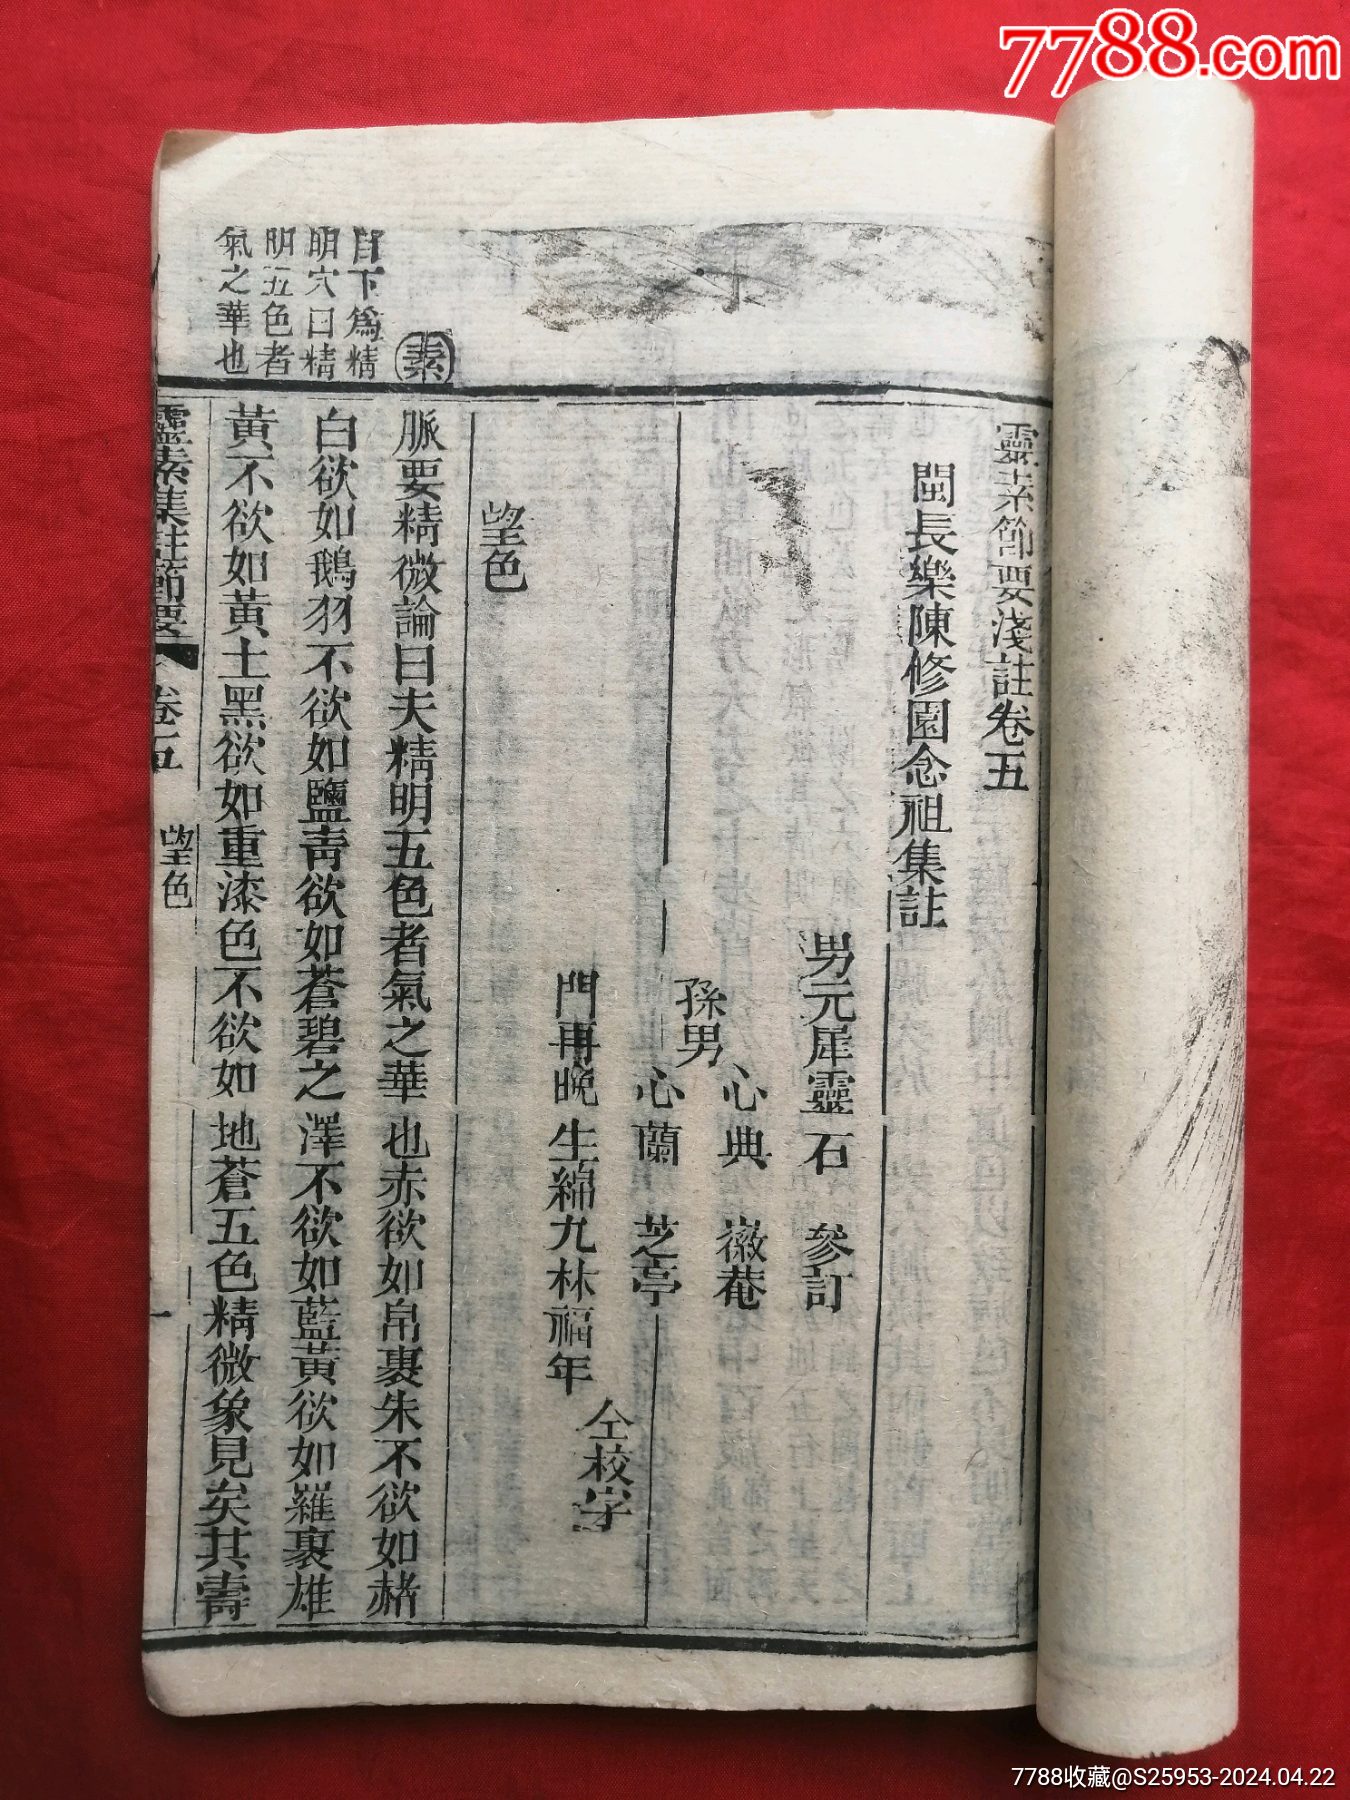 7788.com
靈素節要淺註卷五
閩長樂陳修園念祖集註
男元犀靈石 參訂
孫男 心典 徽菴
心蘭 芝亭
門再晚生綿九林福年
仝校字
望色
脈要精微論曰夫精明五色者氣之華也赤欲如帛裹朱不欲如赭
白欲如鵝羽不欲如鹽青欲如蒼碧之澤不欲如藍黃欲如羅裹雄
黃不欲如黃土黑欲如重漆色不欲如地蒼五色精微象見矣其壽
素
目下為精
明穴曰精
明五色者
氣之華也
靈素集註節要 卷五 望色 一
7788收藏@S25953-2024.04.22